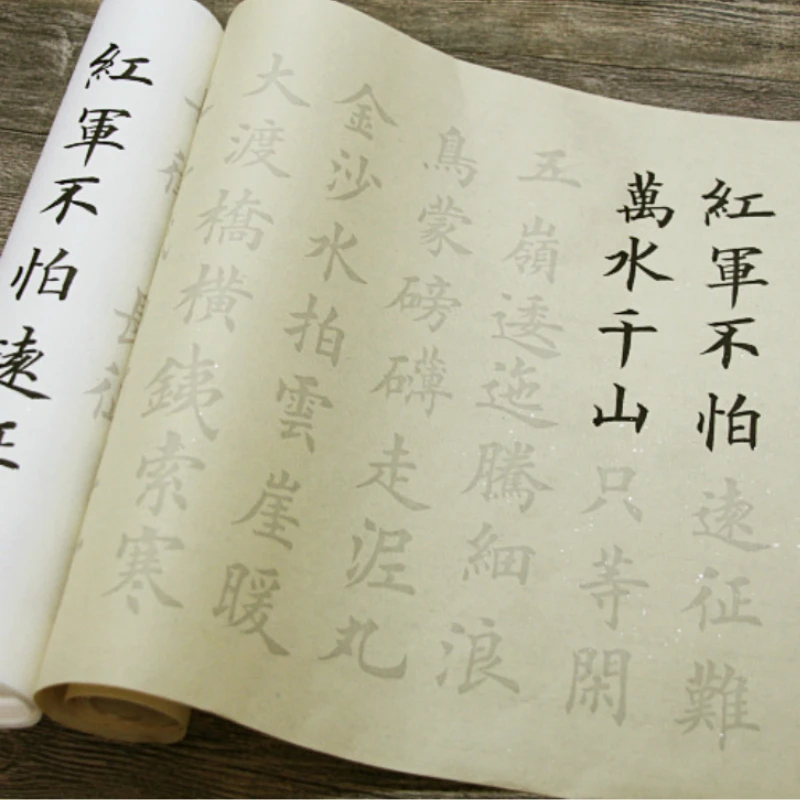 紅軍不怕遠征難
萬水千山只等閑
五嶺逶迤騰細浪
烏蒙磅礴走泥丸
金沙水拍雲崖暖
大渡橋橫銕索寒
紅軍不怕遠